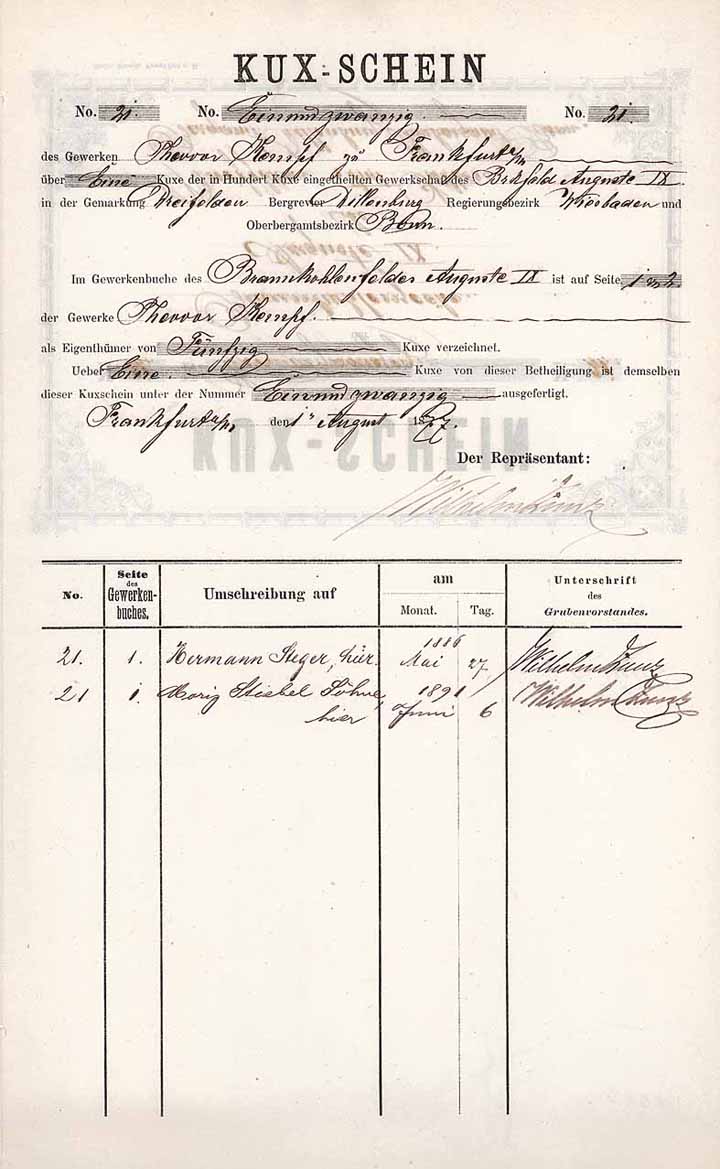 KUX-SCHEIN
No. 21. No. Einundzwanzig. No. 21.
des Gewerken Theodor Kempf zu Frankfurt a/M
über Eine Kuxe der in Hundert Kuxe eingetheilten Gewerkschaft des Brkfeld Auguste IX
in der Gemarkung Bergrevier Dillenburg Regierungsbezirk Wiesbaden und
Oberbergamtsbezirk Bonn.
Im Gewerkenbuche des Braunkohlenfeldes Auguste IX ist auf Seite 1
der Gewerke Theodor Kempf.
als Eigenthümer von Fünfzig Kuxe verzeichnet.
Ueber Eine. Kuxe von dieser Betheiligung ist demselben
dieser Kuxschein unter der Nummer Einundzwanzig ausgefertigt.
Frankfurt a/M, den 1n August 1877.
Der Repräsentant:
Wilhelm Kunz
No. Seite des Gewerken-buches. Umschreibung auf am Monat. Tag. Unterschrift des Grubenvorstandes.
1886
21. 1. Hermann Steger, hier. Mai 27. Wilhelm Kunz
21 1. Moriz Stiebel Söhne, 1891 Wilhelm Kunz
hier Juni 6